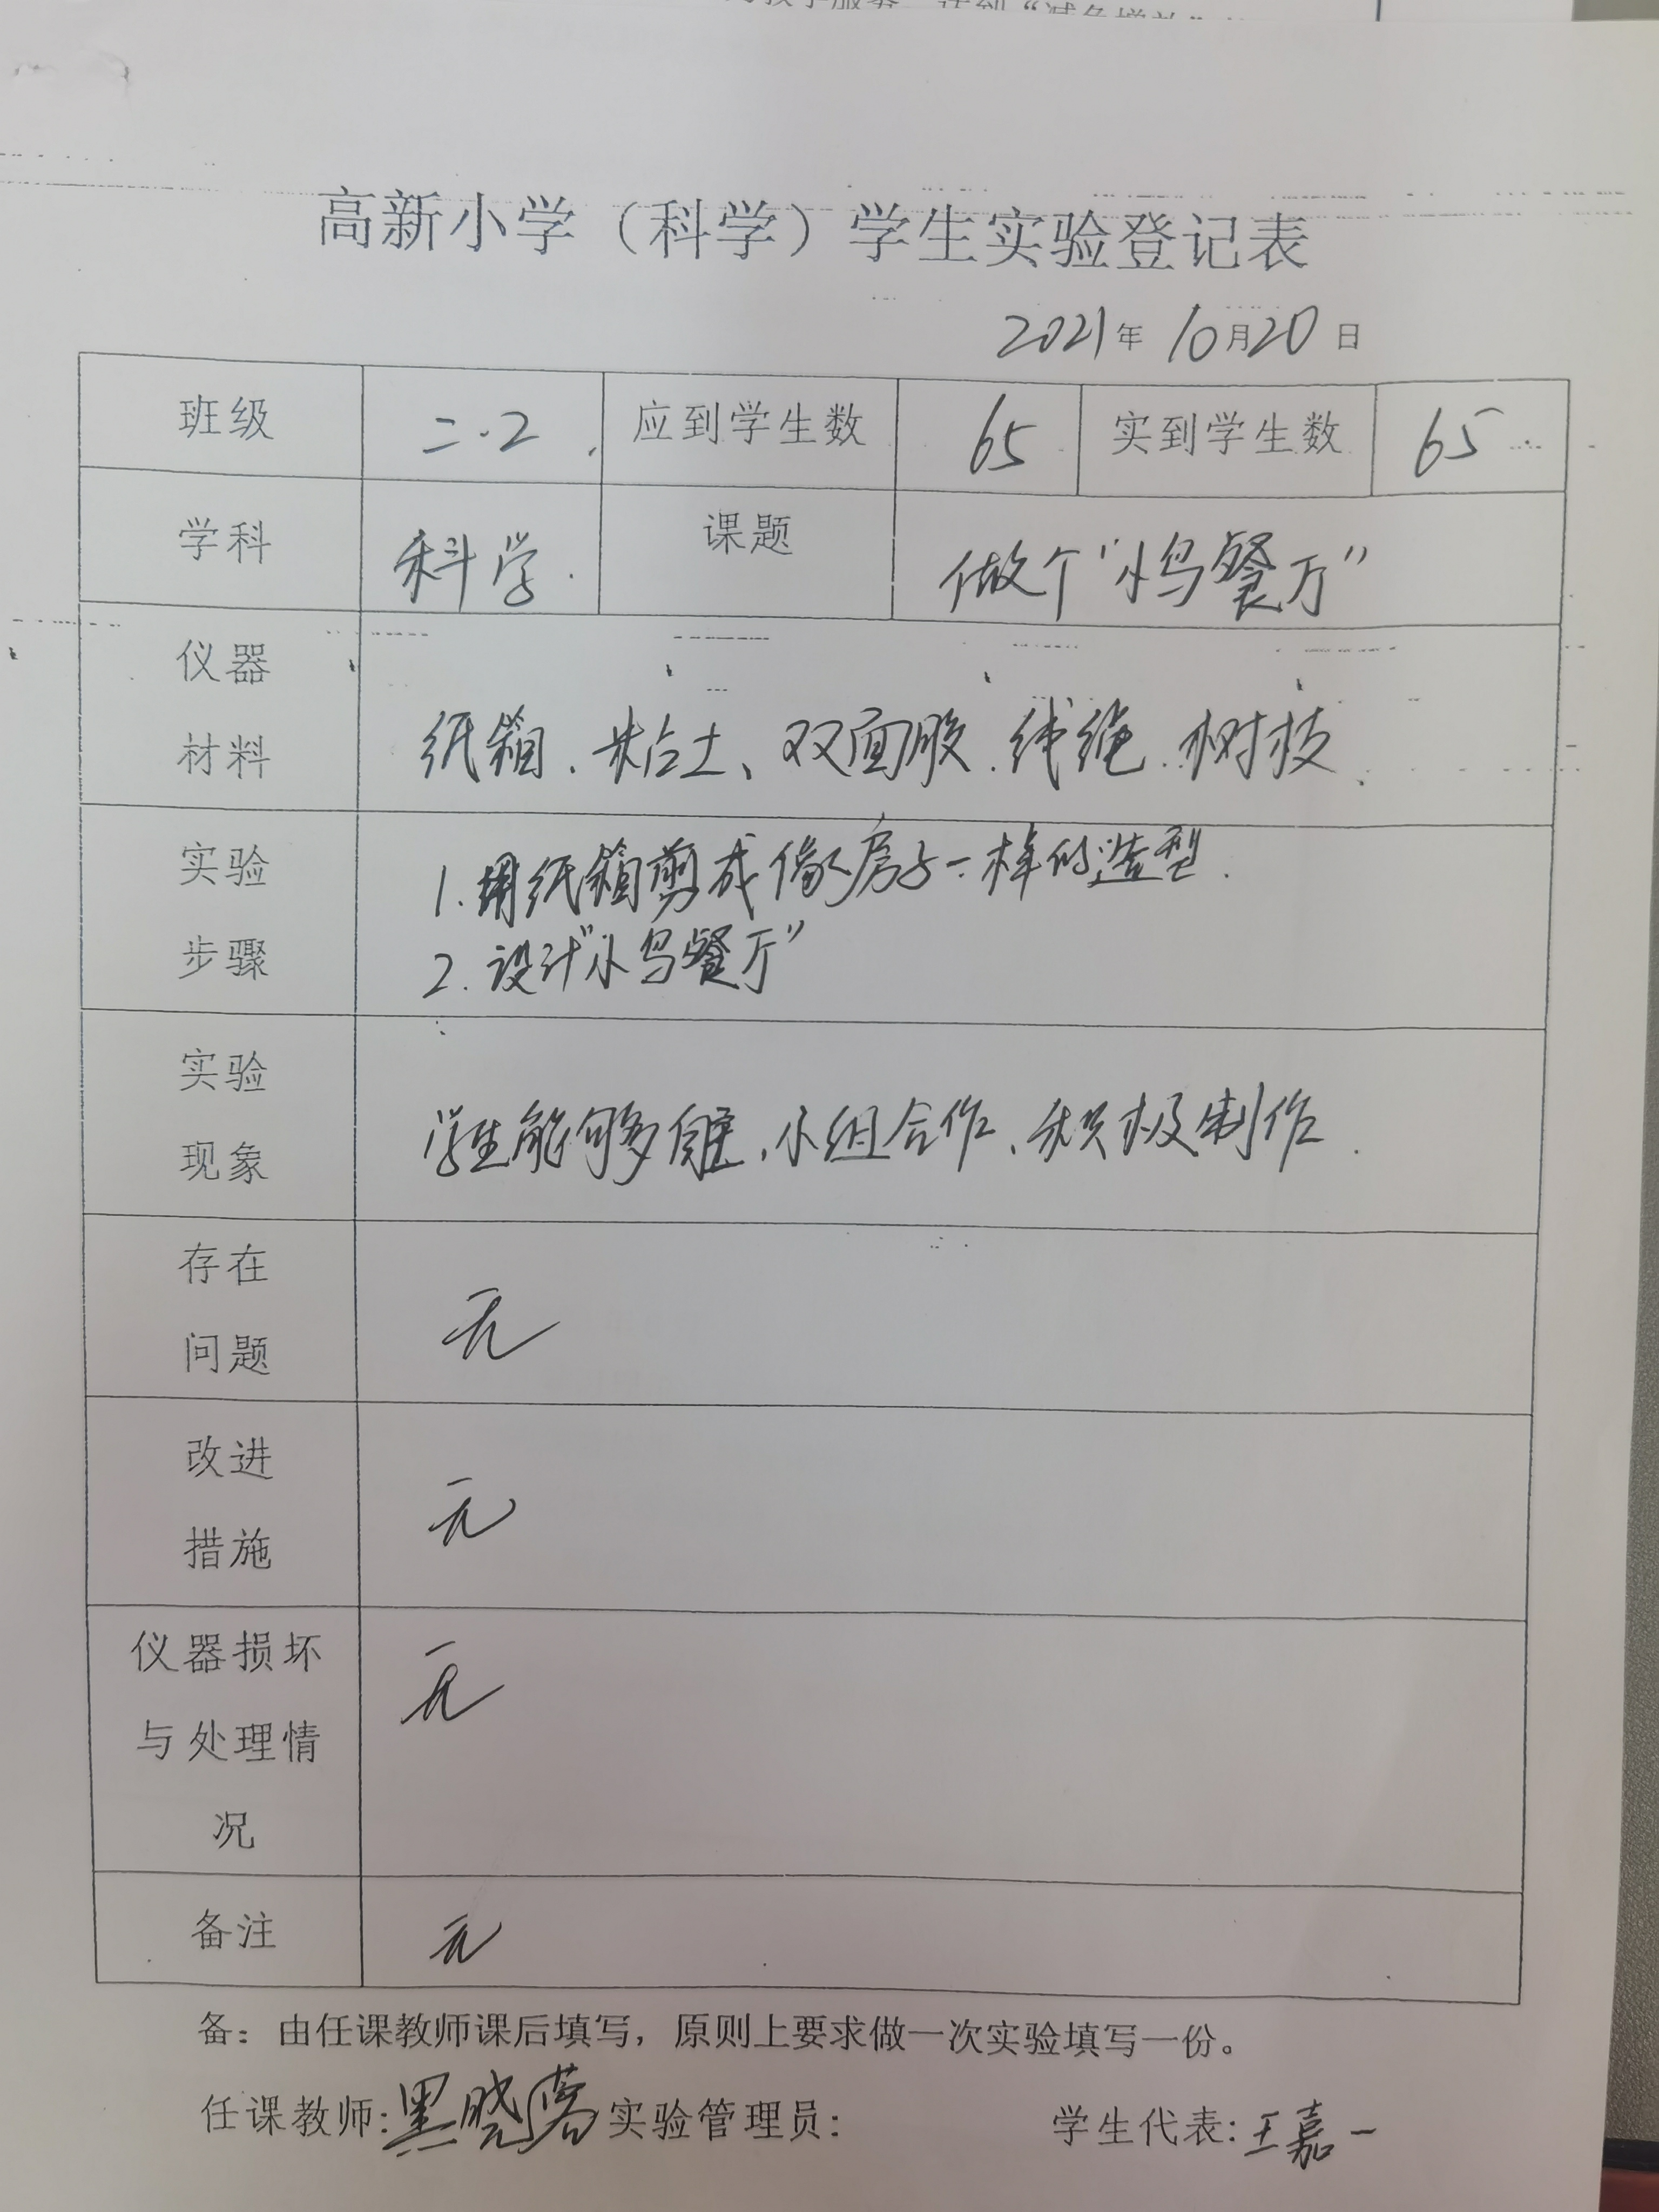 高新小学（科学）学生实验登记表
2021年 10月20日
班级 二.2 应到学生数 65 实到学生数 65
学科 科学 课题 做个“小鸟餐厅”
仪器材料 纸箱、粘土、双面胶、线绳、树枝
实验步骤 1.用纸箱剪成像房子一样的造型.
2.设计“小鸟餐厅”
实验现象 学生能够 小组合作、积极制作.
存在问题 无
改进措施 无
仪器损坏与处理情况 无
备注 无
备：由任课教师课后填写，原则上要求做一次实验填写一份。
任课教师:黑晓蓉 实验管理员: 学生代表:王嘉一